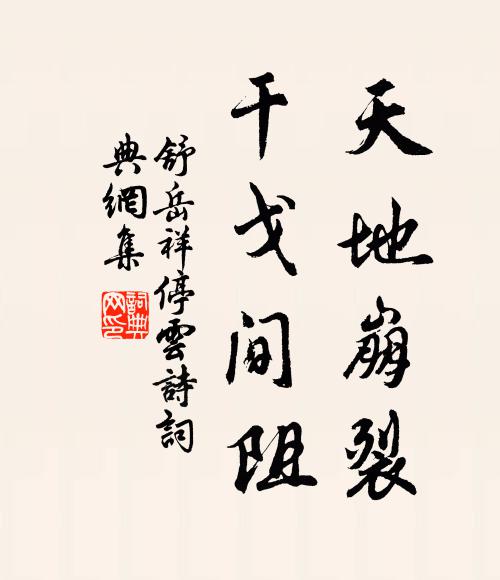 天地崩裂
干戈间阻
舒岳祥停雲詩詞
典網集
詞典
网印